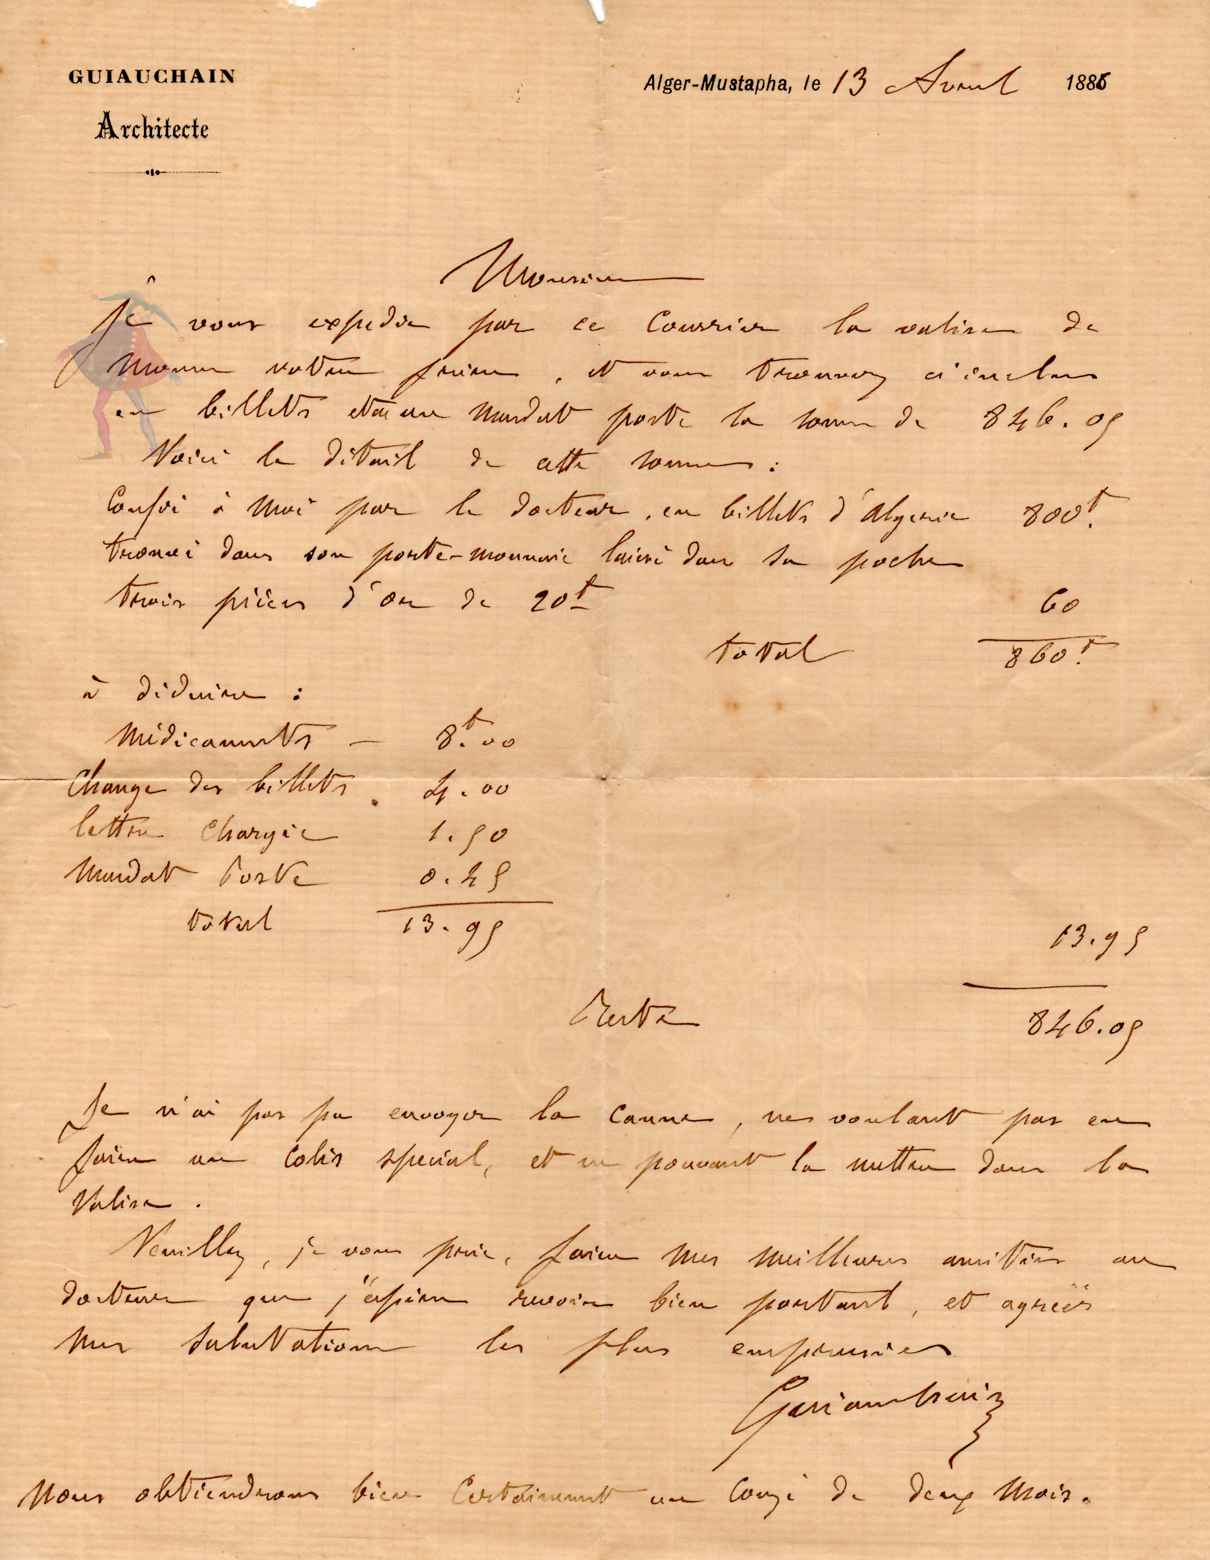 GUIAUCHAIN
Architecte
Alger-Mustapha, le 13 Avril 1886
Monsieur
Je vous expedie par ce courrier la valise de
Monsr votre frère, et vous trouverez ci inclus
en billets et en un mandat poste la somme de 846.05
Voici le détail de cette somme :
Confié à moi par le docteur, en billets d'Algerie 800f.
trouvé dans son porte-monnaie laissé dans sa poche
trois pièces d'or de 20f 60
total 860f.
à déduire :
Médicaments – 8f.00
Change des billets. 4.00
lettre chargée 1.50
Mandat Poste 0.45
total 13.95
13.95
Reste 846.05
Je n'ai pas pu envoyer la canne, ne voulant pas en
faire un colis special, et ne pouvant la mettre dans la
Valise.
Veuillez, je vous prie, faire mes meilleures amitiés au
docteur que j'espère revoir bien portant, et agréer
mes salutations les plus empressées
Guiauchain
Nous obtiendrons bien certainement un congé de deux mois.